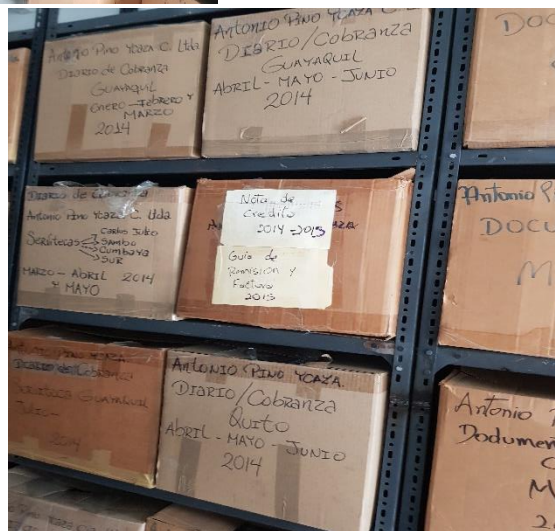 Antonio Pino Ycaza C. Ltda
Diario de Cobranza
GUAYAQUIL
ENERO - Febrero Y
MARZO
2014
Antonio Pino Ycaza C. L
DIARIO/COBRANZA
GUAYAQUIL
ABRIL - MAYO - JUNIO
2014
DOC
Diario de Cobranza
Antonio Pino Ycaza C. Ltda
Carlos Julio
Sambo
Cumbaya
SUR
MARZO - ABRIL 2014
Y MAYO
Nota de
Credito
2014 - 2015
Guia de
Remisión y
Factura
2015
Antonio P
DOCU
M
Antonio Pino Ycaza
Diario de Cobranza
GUAYAQUIL
Julio -
2014
ANTONIO PINO YCAZA.
DIARIO/COBRANZA
Quito
ABRIL - MAYO - JUNIO
2014
Antonio
Dodumen
C
M
2